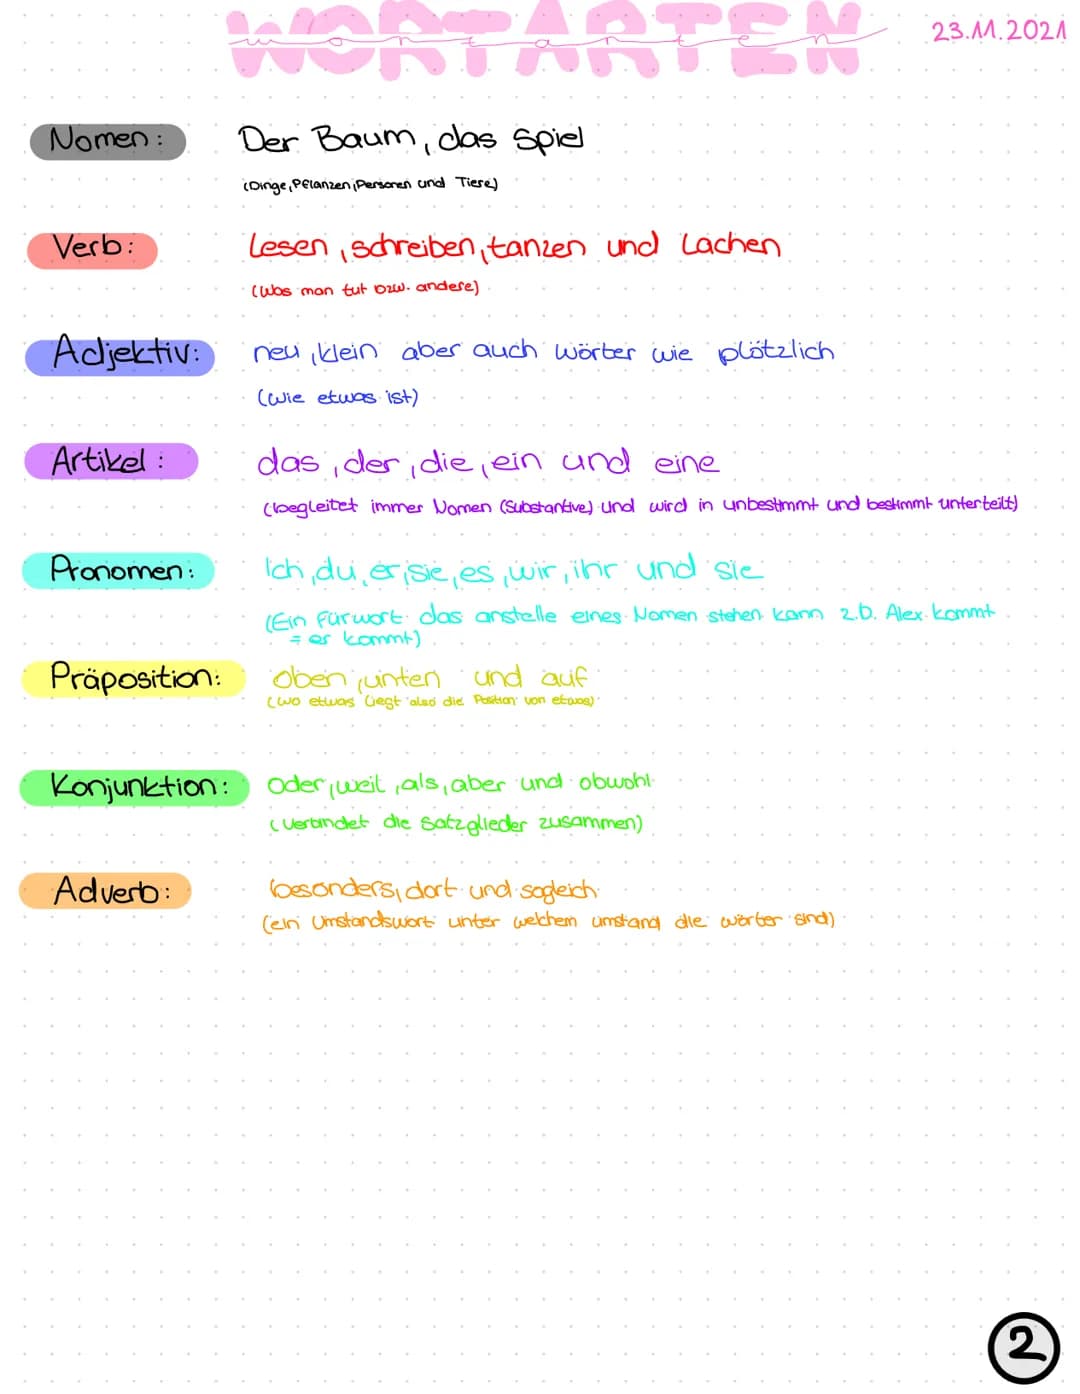 WORTARTEN
wortarten
23.11.2021
Nomen: Der Baum, das Spiel
(Dinge, Pflanzen, Personen und Tiere)
Verb: Lesen, schreiben, tanzen und Lachen
(Was man tut bzw. andere)
Adjektiv: neu, klein aber auch wörter wie plötzlich
(wie etwas ist)
Artikel: das, der, die, ein und eine
(begleitet immer Nomen (Substantive) und wird in unbestimmt und bestimmt unterteilt)
Pronomen: Ich, du, er, sie, es, wir, ihr und sie
(Ein Fürwort das anstelle eines Nomen stehen kann z.b. Alex kommt
= er kommt)
Präposition: oben, unten und auf
(wo etwas liegt also die Position von etwas)
Konjunktion: oder, weil, als, aber und obwohl
(verbindet die Satzglieder zusammen)
Adverb: besonders, dort und sogleich
(ein Umstandswort unter welchem umstand die wörter sind)
2